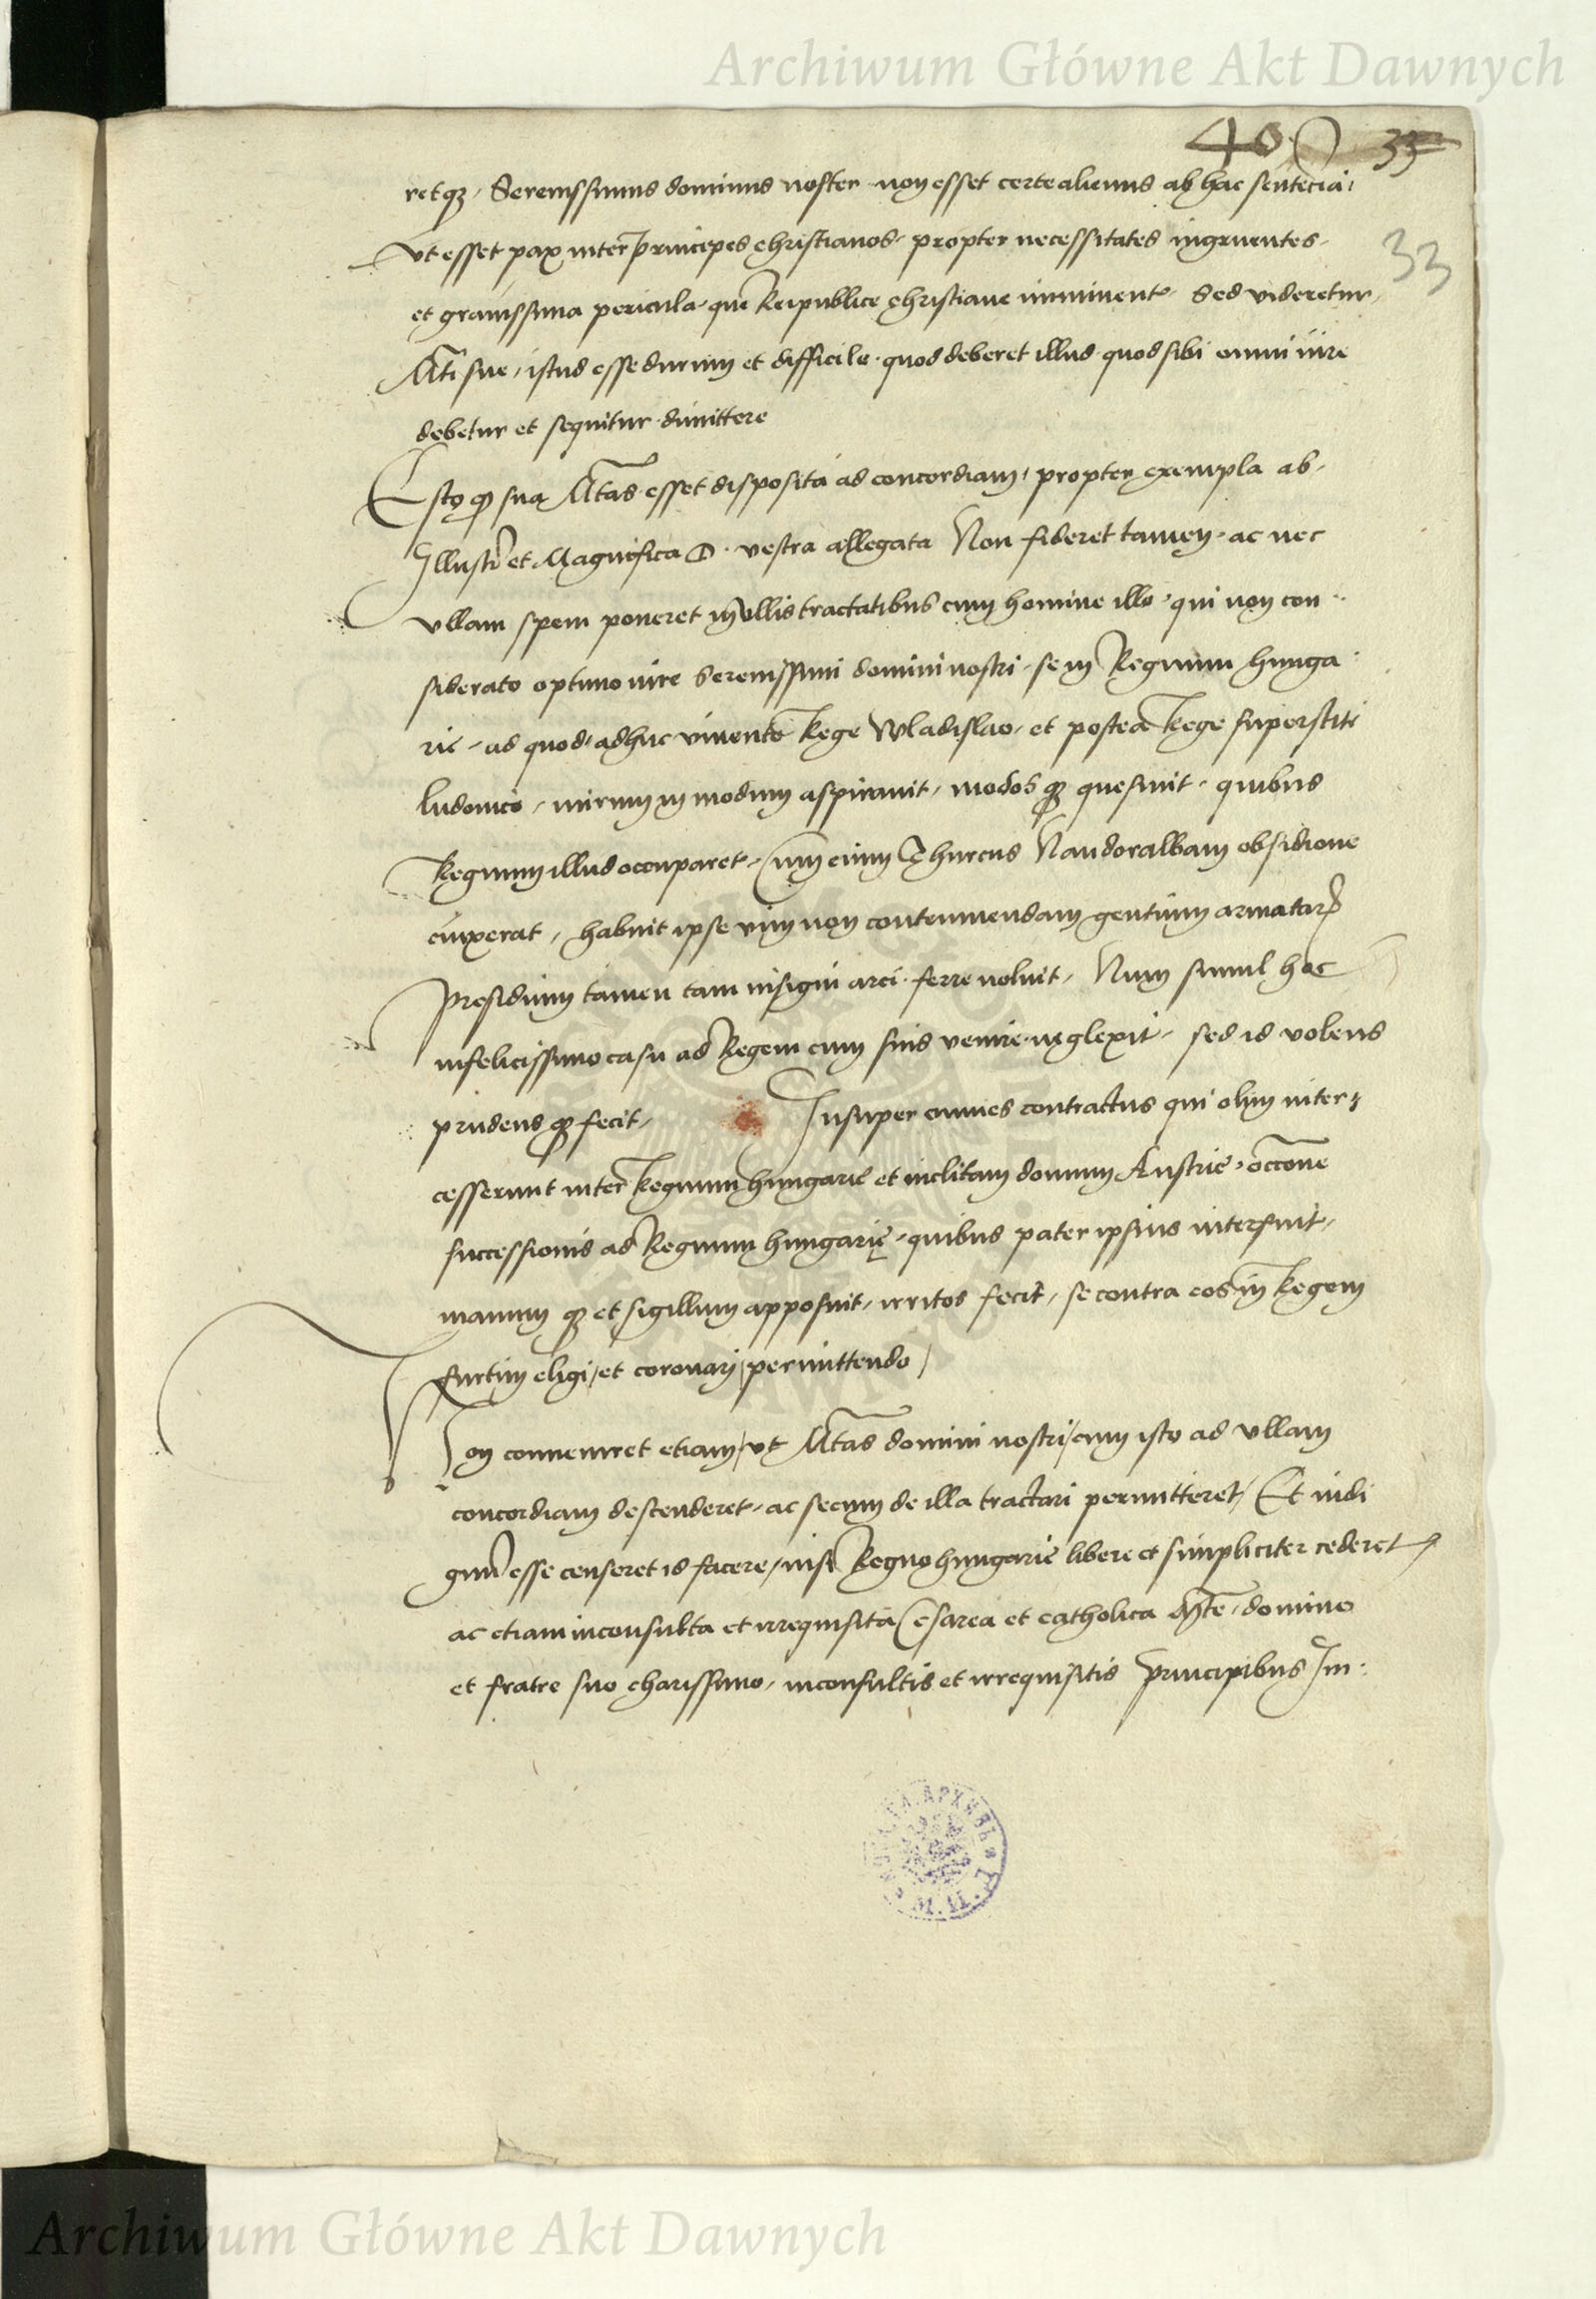 Archiwum Główne Akt Dawnych
40. 33
33
retqȝ, Serenissimus dominus noster non esset certe alienus ab hac sentēcia,
Vt esset pax inter Principes christianos, propter necessitates ingruentes,
et grauissima pericula, que Reipublice christiane imminent. Sed videretur
Mti sue, istud esse durum et difficile, quod deberet illud quod sibi omni iure
debetur et sequitur dimittere
Esto qꝫ sua Mtas esset disposita ad concordiam, propter exempla ab
Illustri et Magnifica D. vestra allegata Non fideret tamen, ac nec
vllam spem poneret in vllis tractatibus cum homine illo, qui non con-
siderato optimo iure Serenissimi domini nostri, se in Regnum hunga
rie, ad quod adhuc viuente Rege Wladislao, et postea Rege superstite
Ludouico, mirum in modum aspirauit, modos qꝫ quesiuit, quibus
Regnum illud occuparet, Cum enim Thurcus Nandoralbam obsidione
cinxerat, habuit ipse vim non contemnendam gentium armatarꝫ
Presidium tamen tam insigni arci ferre noluit, Num simul hoc
infelicissimo casu ad Regem cum suis venire neglexit, sed id volens
prudens qꝫ fecit, Insuper omnes contractus qui olim inter-
cesserunt inter Regnum hungarie et inclitam domum Austrie, occōne
successionis ad Regnum hungarię, quibus pater ipsius interfuit,
manum qꝫ et sigillum apposuit, irritos fecit, se contra eos in Regem
furtim eligi, et coronari permittendo,
Non conueniret etiam, vt Mtas domini nostri, cum isto ad vllam
concordiam descenderet, ac secum de illa tractari permitteret, Et indi
gnū esse censeret id facere, nisi Regno hungarie libere et simpliciter cederet,
ac etiam inconsulta et irrequisita Cesarea et catholica Mte, domino
et fratre suo charissimo, inconsultis et irrequisitis Principibus Im-
Archiwum Główne Akt Dawnych